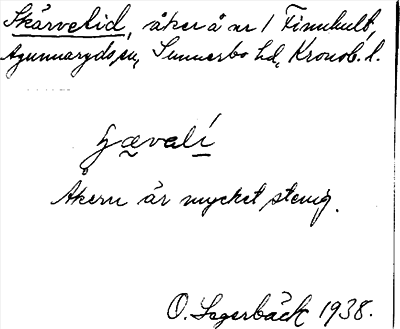 Skärvetid, åker å nr 1 Finnhult,
Agunnaryds sn, Sunnerbo hd, Kronob. l.
Åkern är mycket stenig.
O. Lagerbäck 1938.